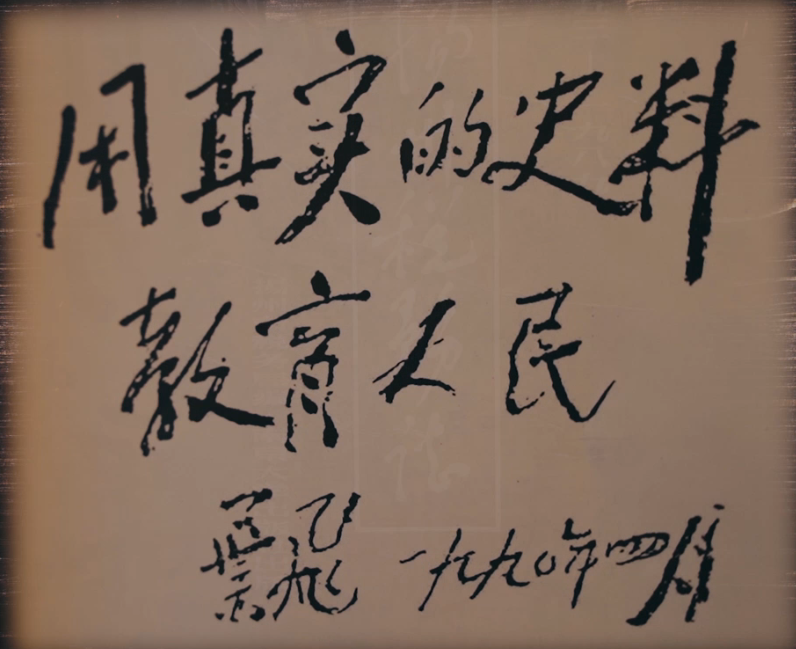 用真实的史料
教育人民
葉飛 一九九〇年四月